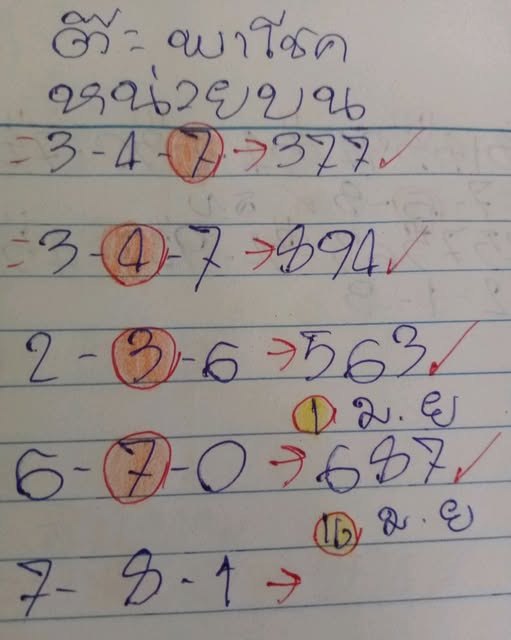 ต๊ะ พาโชค
หน่วยบน
= 3 - 4 - 7 → 377 ✓
= 3 - 4 - 7 → 894 ✓
2 - 3 - 6 → 563 ✓
1 ม. ย
6 - 7 - 0 → 687 ✓
16 ม. ย
7 - 8 - 1 →